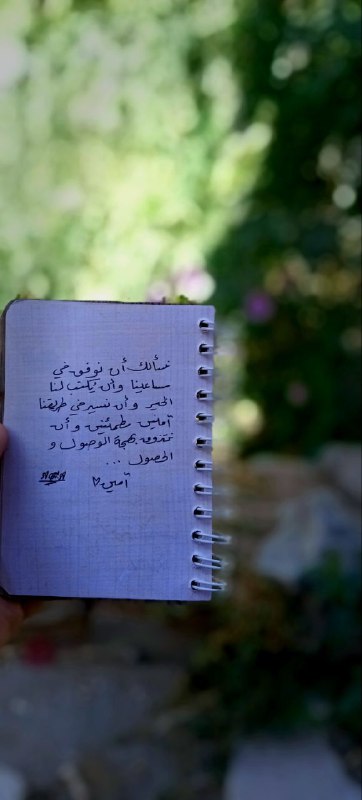 نسألك أن نوفق في
مساعينا وأن يُكتب لنا
الخير وأن نسير في طريقنا
آمنين مطمئنين وأن
نتذوق بهجة الوصول و
الحصول ...
آمين ♡